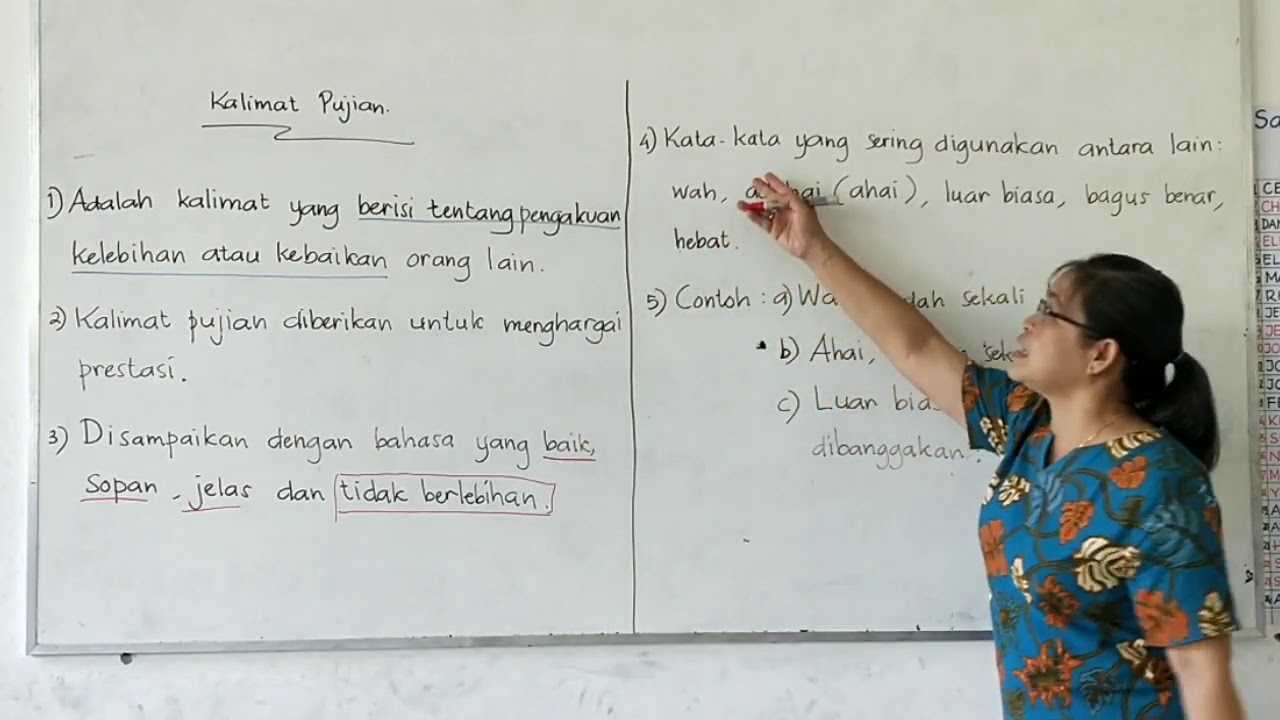 Kalimat Pujian.
1) Adalah kalimat yang berisi tentang pengakuan
kelebihan atau kebaikan orang lain.
2) Kalimat pujian diberikan untuk menghargai
prestasi.
3) Disampaikan dengan bahasa yang baik,
sopan, jelas dan tidak berlebihan.
4) Kata-kata yang sering digunakan antara lain:
wah, (ahai), luar biasa, bagus benar,
hebat.
5) Contoh: a) sekali
b) Ahai,
c) Luar
dibanggakan.